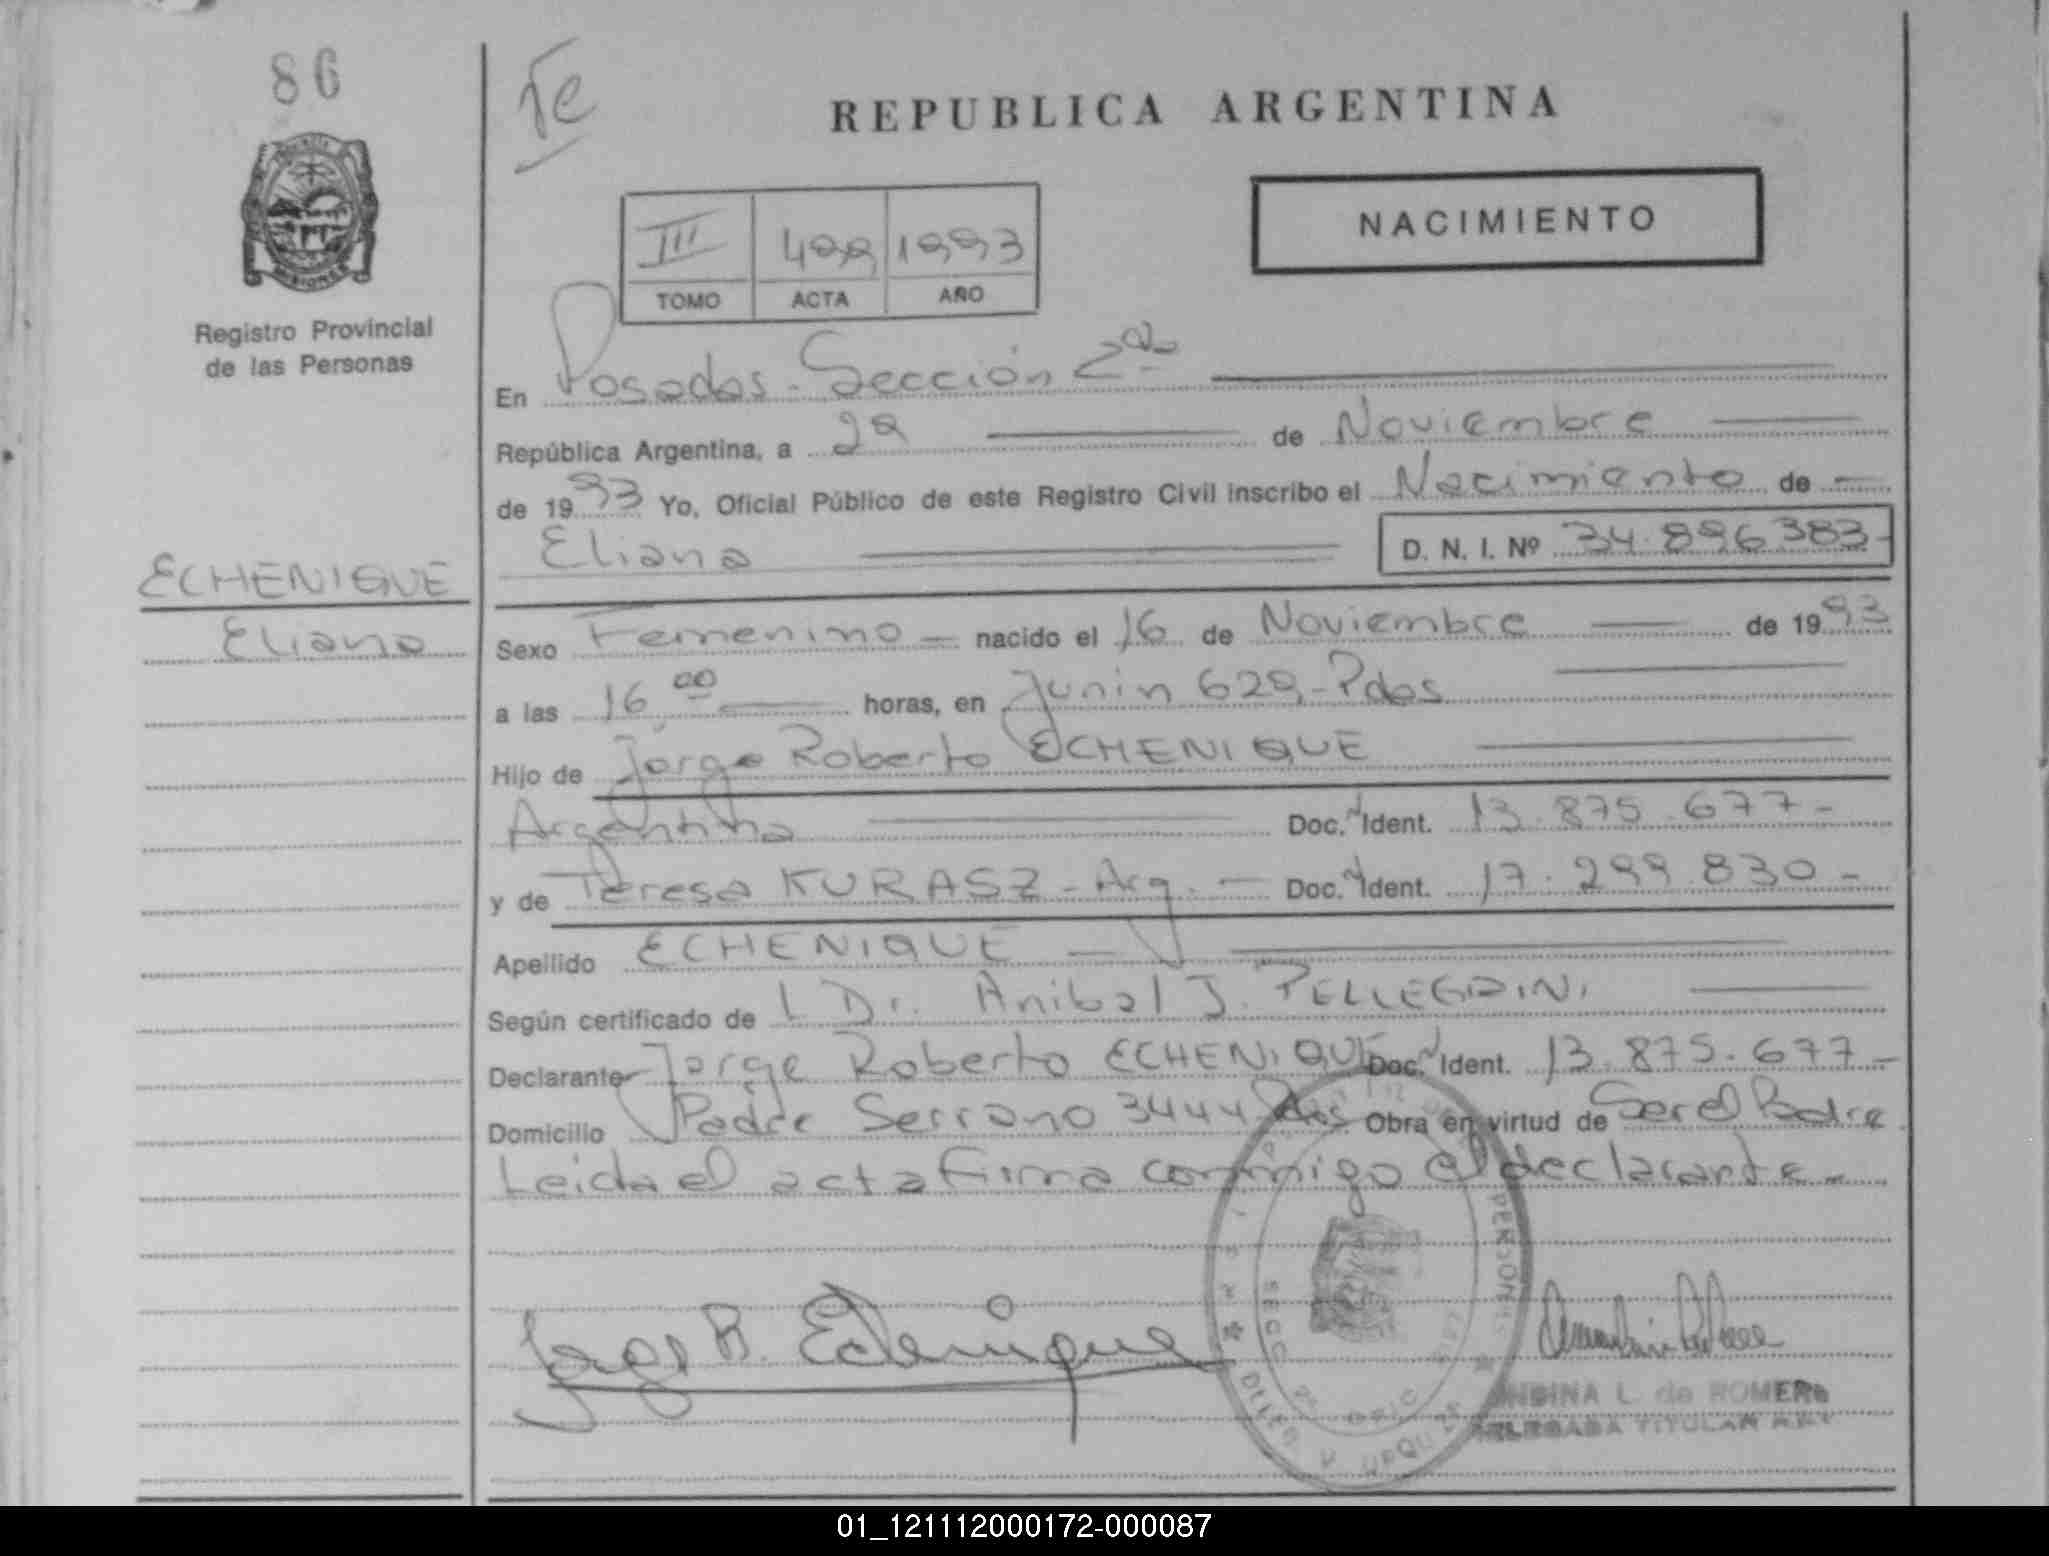 86
Te
REPUBLICA ARGENTINA
NACIMIENTO
III 499 1993
TOMO ACTA AÑO
Registro Provincial
de las Personas
En Posadas - Sección 2da
República Argentina, a 29 de Noviembre
de 1993 Yo, Oficial Público de este Registro Civil inscribo el Nacimiento de
Eliana D. N. I. Nº 34.896.383-
ECHENIQUE
Eliana
Sexo Femenino nacido el 16 de Noviembre de 1993
a las 16 00 horas, en Junin 629 - Pdas
Hijo de Jorge Roberto ECHENIQUE
Argentina Doc. N Ident. 13.875.677-
y de Teresa KURASZ - Arg. - Doc. N Ident. 17.299.830-
Apellido ECHENIQUE
Según certificado de l Dr. Anibal J. PELLEGRINI
Declarante Jorge Roberto ECHENIQUE Doc. N Ident. 13.875.677-
Domicilio Padre Serrano 3444 Pdas Obra en virtud de Ser el Padre
Leida el acta firma conmigo el declarante -
Jorge R. Echenique
PERSONAS
SECC 2a
L. de ROMERO
DELEGADA TITULAR
01_121112000172-000087